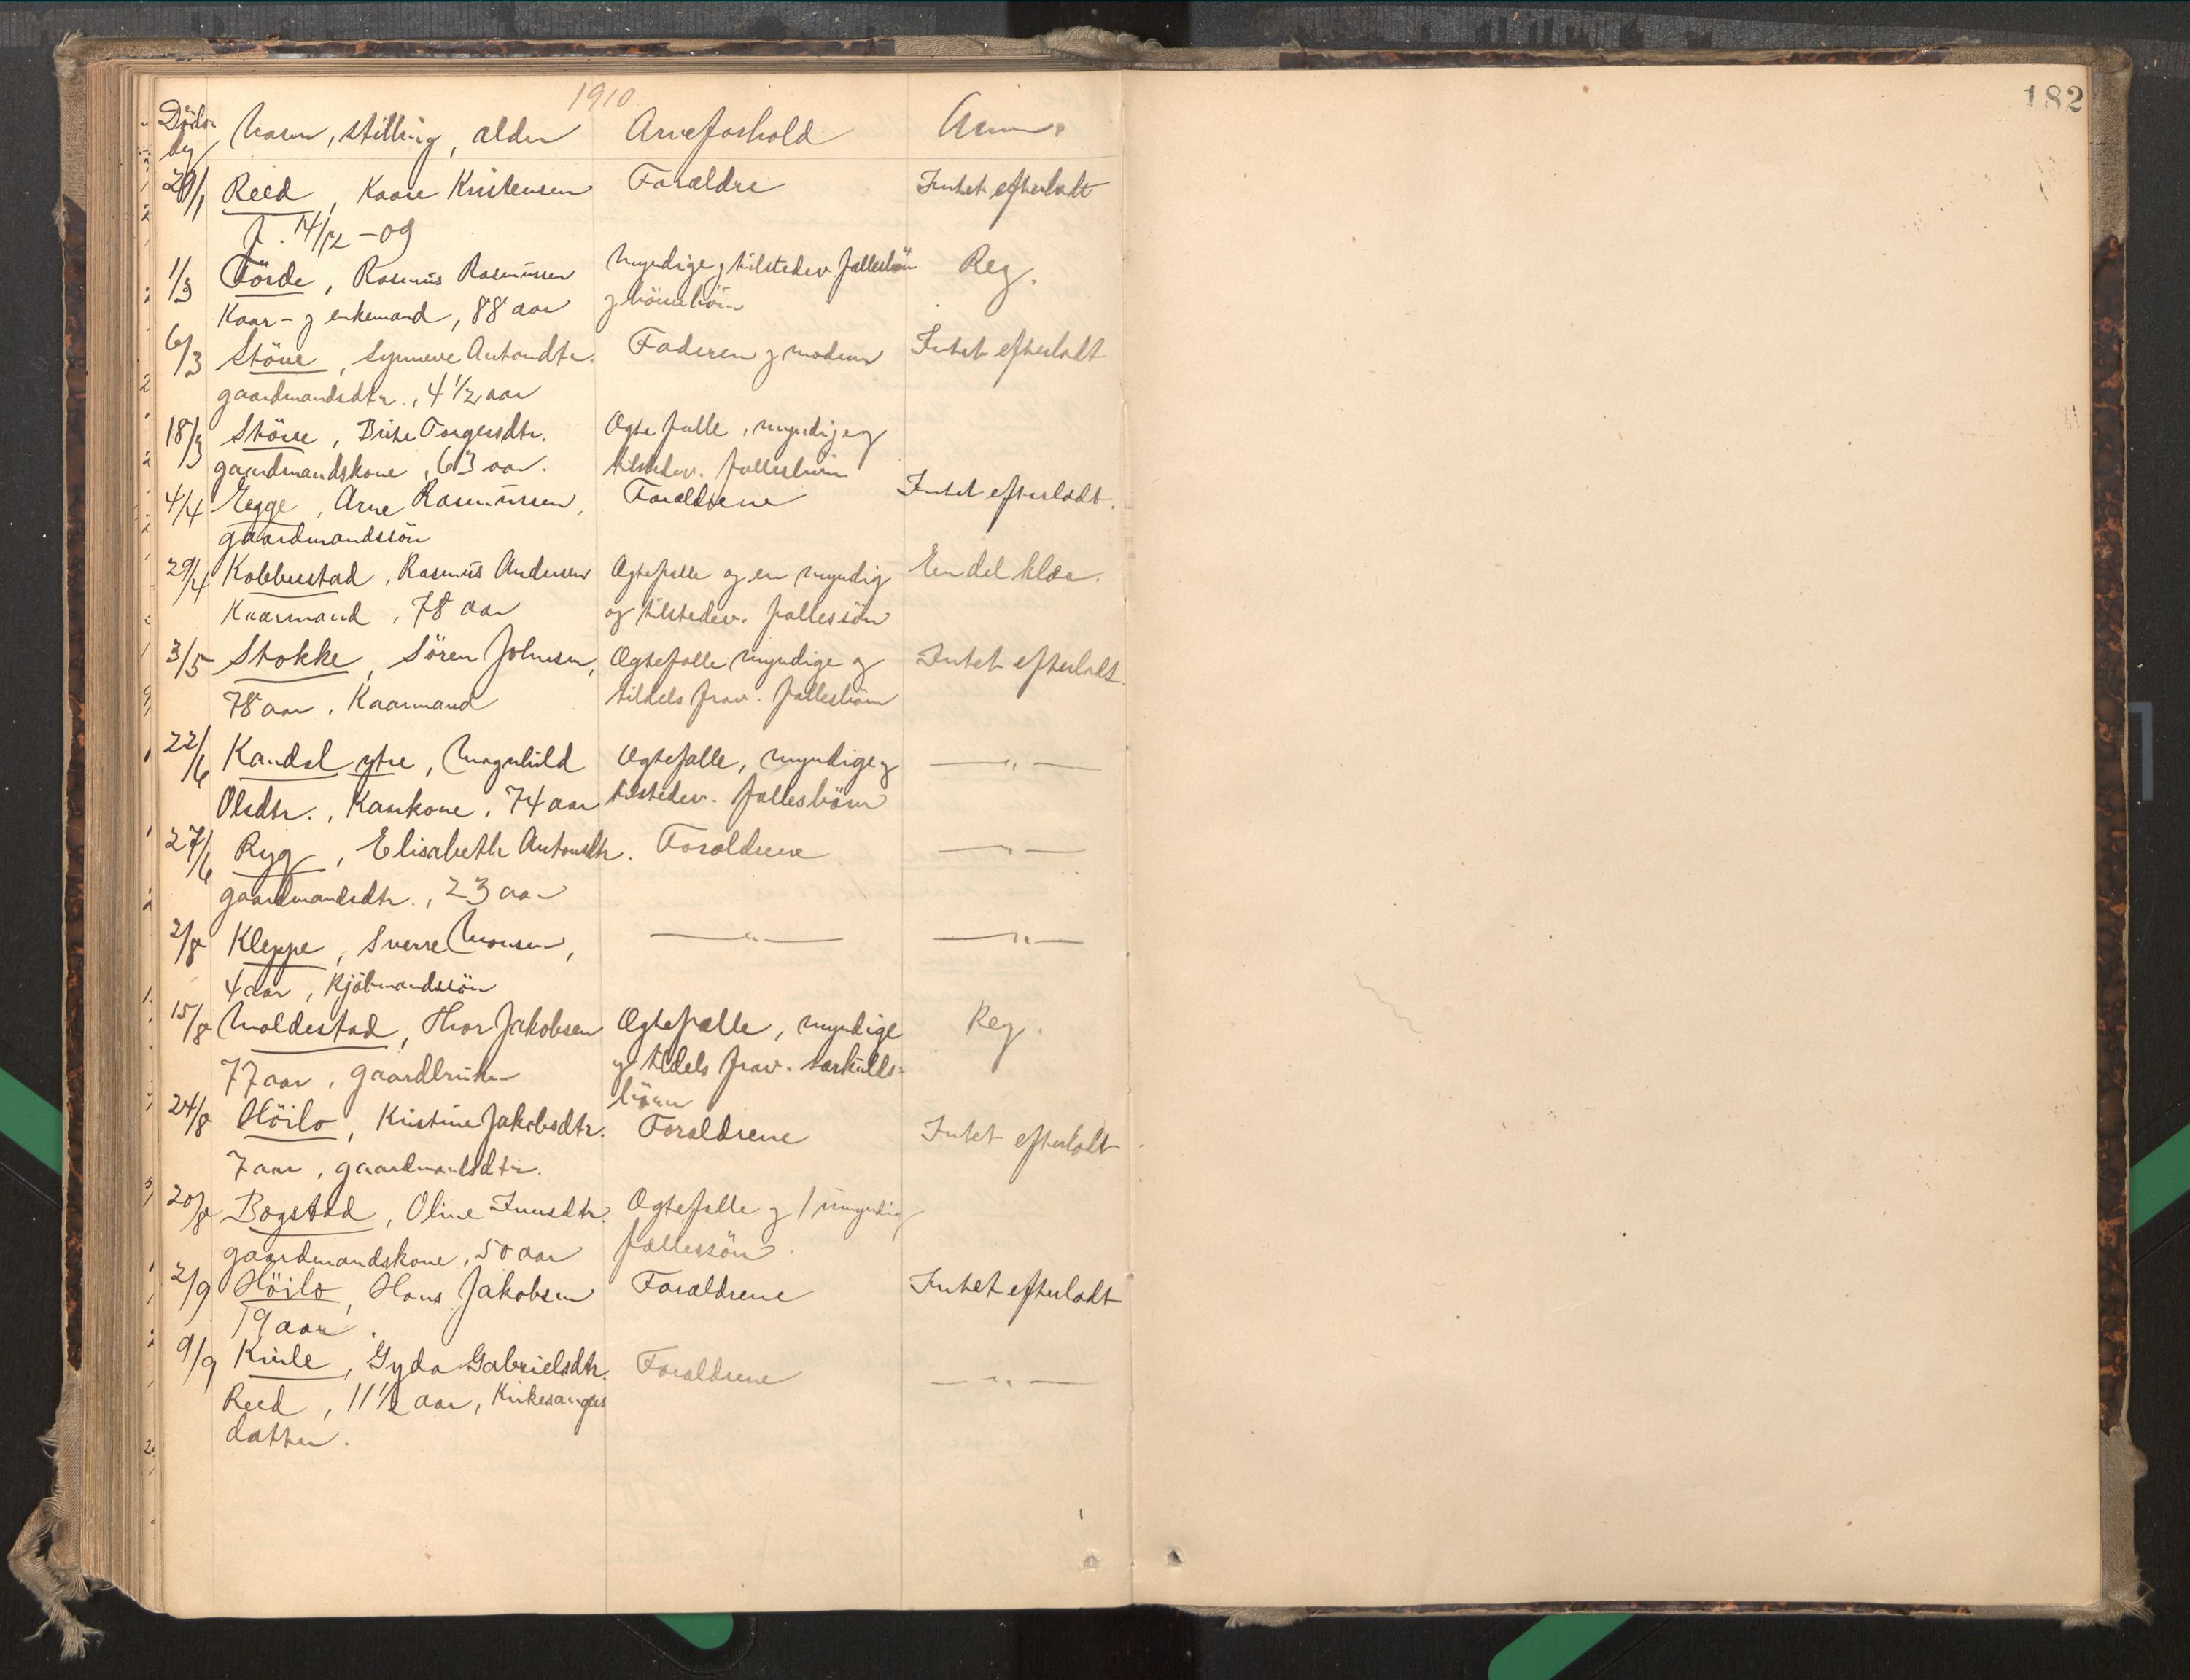 1910
182
Döds-
dag
Navn, stilling, alder
Arveforhold
Anm.
29/1 Reed, Kaare Kristensen Forældre Intet efterladt
f. 14/12 -09
1/3 Förde, Rasmus Rasmussen Myndige og tilstedev. fællesbörn Reg.
Kaar- og enkemand, 88 aar og börnebörn
6/3 Støve, Synneve Antondtr. Faderen og moderen Intet efterladt
gaardmandsdtr., 4 1/2 aar
18/3 Støve, Brite Torgersdtr. Ægtefælle, myndige og
gaardmandskone, 63 aar. tilstedev. fællesbørn
4/4 Egge, Arne Rasmussen, Forældrene Intet efterladt.
gaardmandssön
29/4 Kobberstad, Rasmus Andersen Ægtefælle og en myndig En del klær.
Kaarmand, 78 aar og tilstedev. fællessön
3/5 Stokke, Sören Johnsen, Ægtefælle myndige og Intet efterladt.
78 aar, Kaarmand tildels frav. fællesbörn
22/6 Kandal ytre, Magnhild Ægtefælle, myndige og — „ —
Olsdtr., Kaarkone, 74 aar tilstedev. fællesbörn
27/6 Ryg, Elisabeth Antondtr. Forældrene — „ —
gaardmandsdtr., 23 aar
2/8 Kleppe, Sverre Monsen, — „ — — „ —
4 aar, Kjöbmandssön
15/8 Moldestad, Thor Jakobsen Ægtefælle, myndige Reg.
77 aar, gaardbruker og tildels frav. særkulls-
börn
24/8 Höilo, Kristine Jakobsdtr. Forældrene Intet efterladt
7 aar, gaardmandsdtr.
20/8 Bogstad, Oline Jensdtr. Ægtefælle og 1 umyndig
gaardmandskone, 50 aar fællessön.
2/9 Höilo, Hans Jakobsen Forældrene Intet efterladt
19 aar.
9/9 Gyda Gabrielsdtr. Forældrene — „ —
Reed, 11 1/2 aar, Kirkesangers
datter.